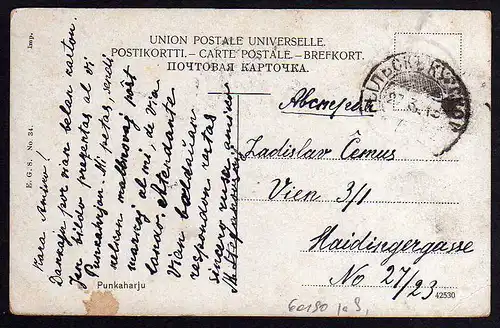 UNION POSTALE UNIVERSELLE.
POSTIKORTTI. – CARTE POSTALE. – BREFKORT.
ПОЧТОВАЯ КАРТОЧКА.
Imp.
E. G. S. No 34.
Kara Amiko!
Dankaja por vian belan karton.
Jen bildo prezentas al vi
Punkaharjun. Mi petas, sendu
nelonan
markoj al mi, de via
lando. Atendante
Vian baldaŭan
respondon restas
sincere
Punkaharju
Австрія
Ladislav Čemus
Vien 3/1
Haidingergasse
No 27/23
42530